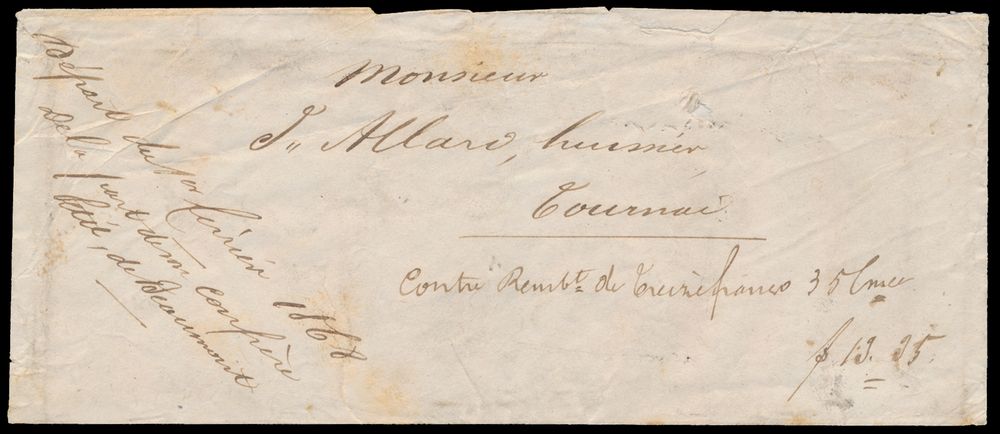 Monsieur
J,, Allard, huissier
Tournai
Contre Rembt. de treize francs 35 Cmes
f 13. 35.
Départ du 1er février 1868
De la part de mon confrère
de Beaumont